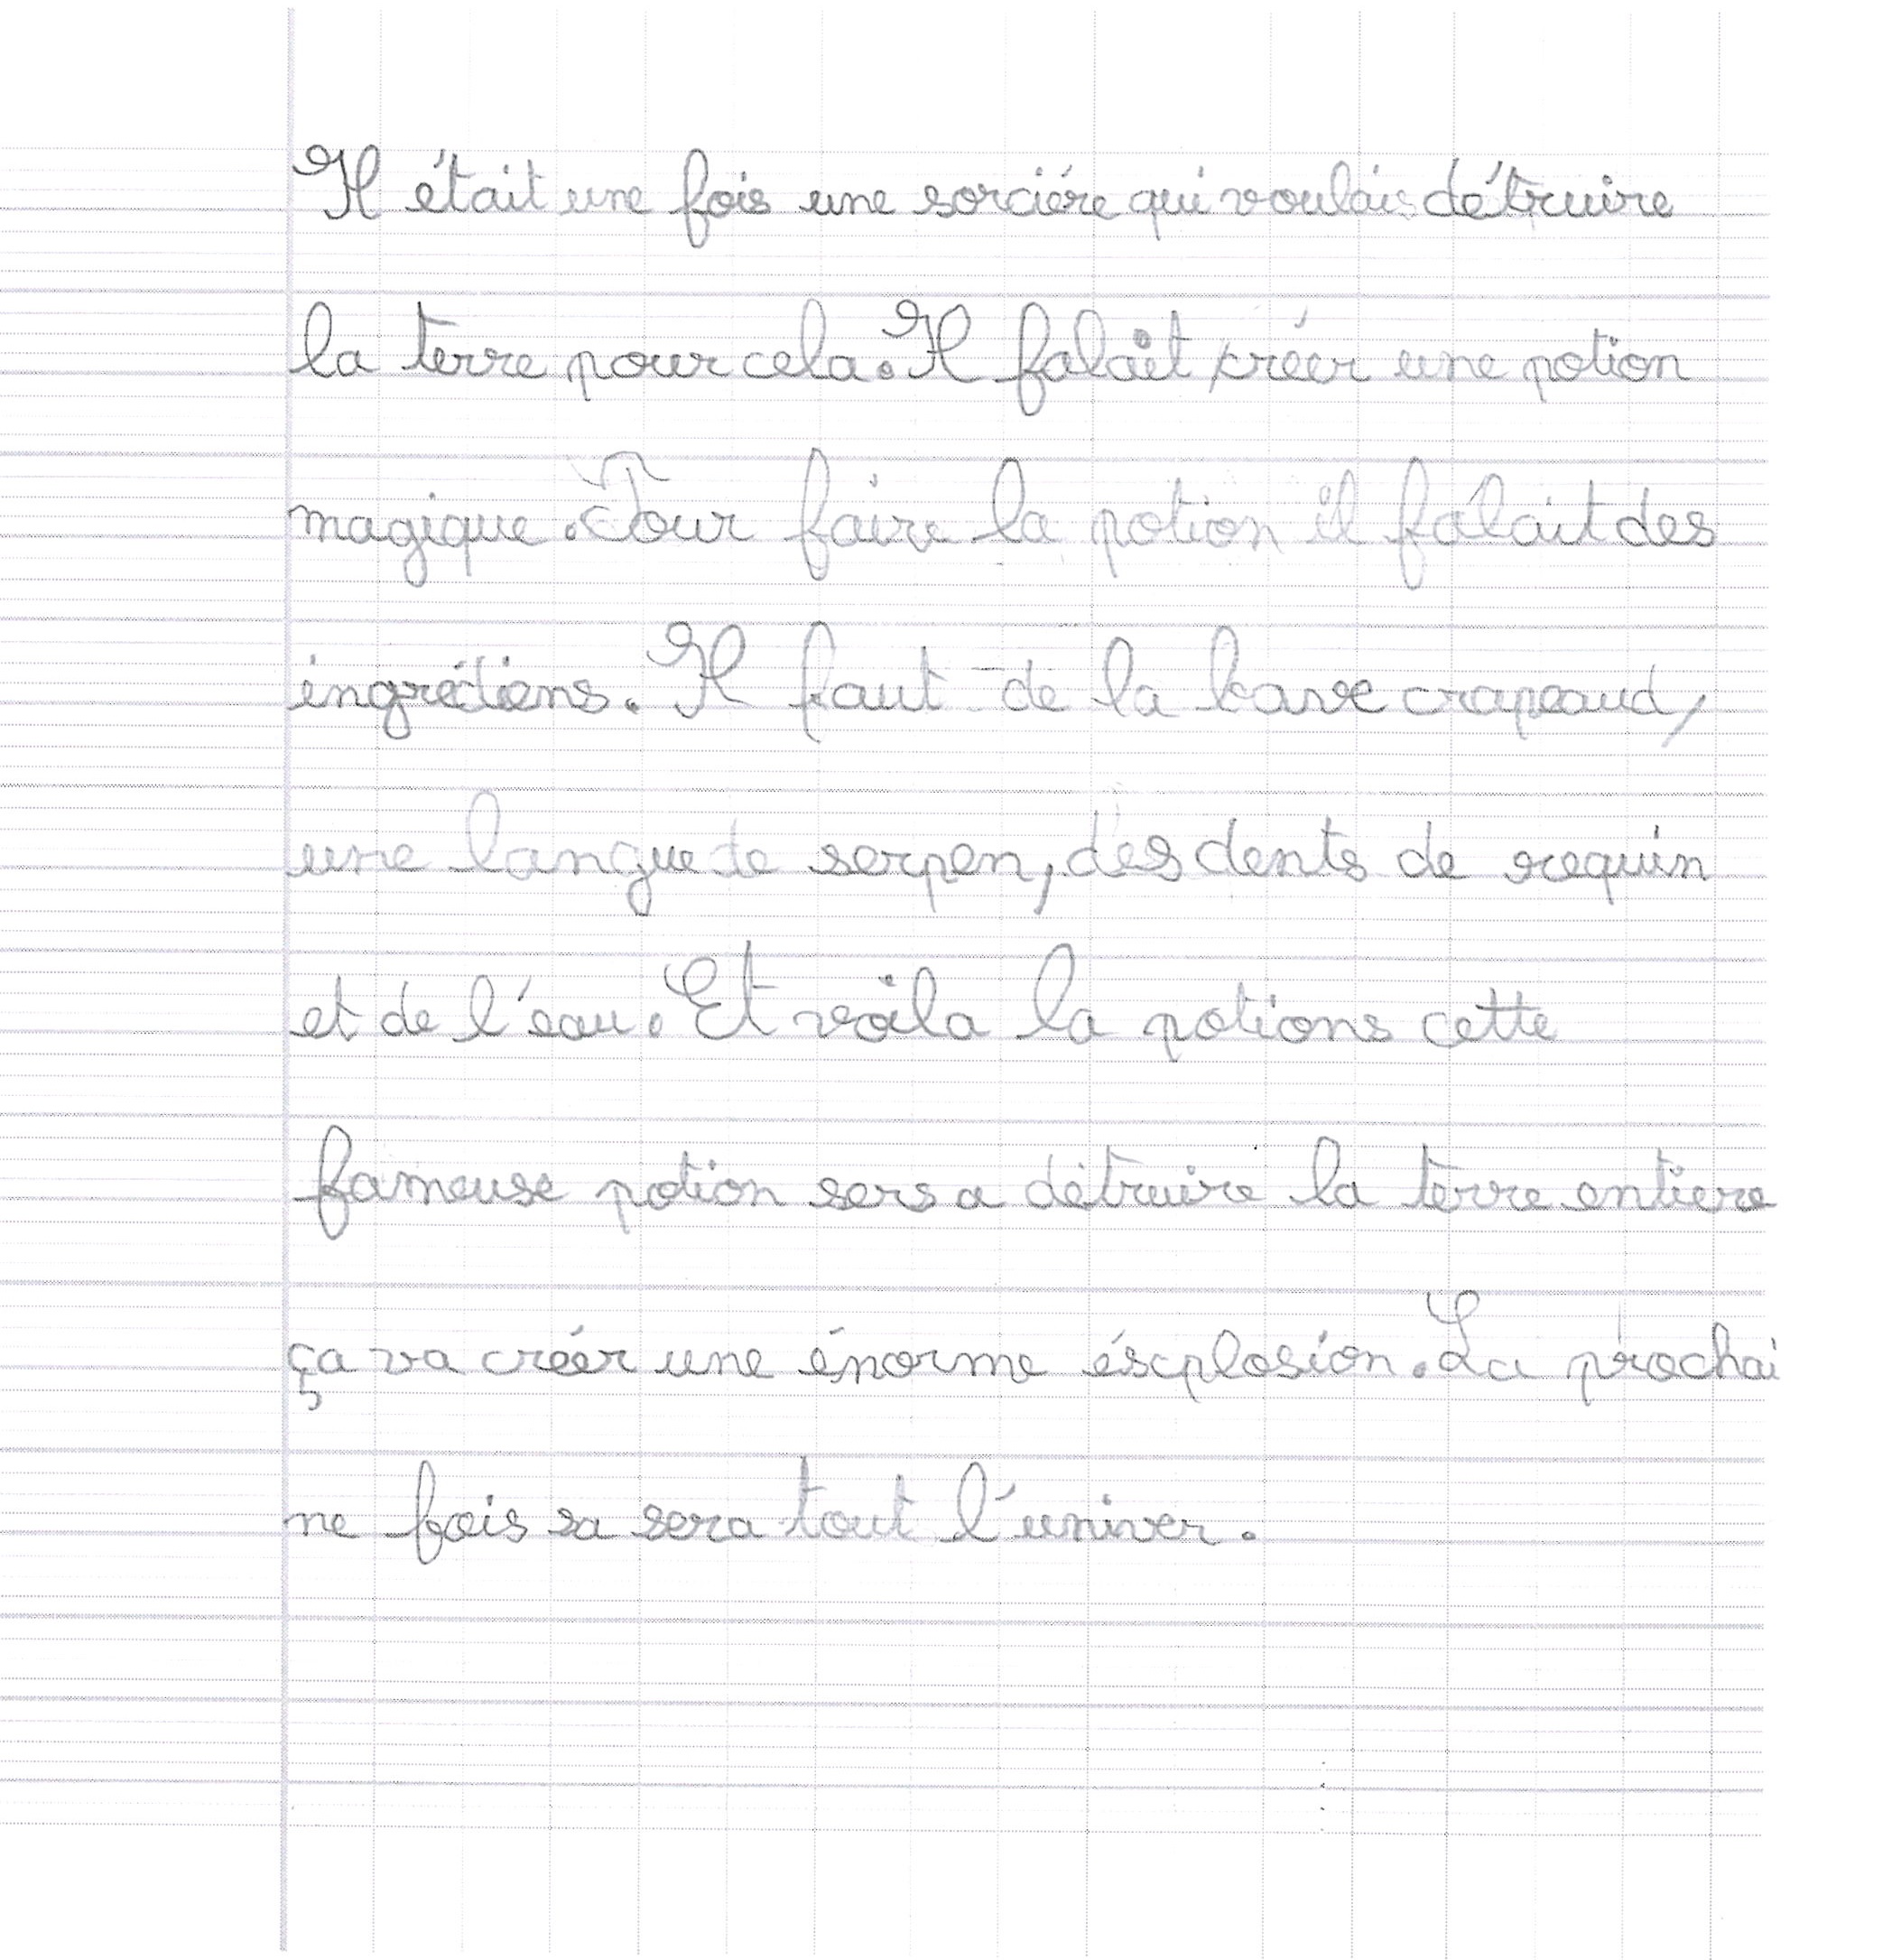 Il était une fois une sorciére qui voulais détruire
la terre pour cela. Il falait créer une potion
magique. Pour faire la potion il falait des
ingrédiens. Il faut de la bave crapeaud,
une langue de serpen, des dents de requin
et de l'eau. Et voila la potions cette
fameuse potion sers a détruire la terre entiere
ça va créer une énorme ésxplosion. La prochai
ne fois sa sera tout l'univer.